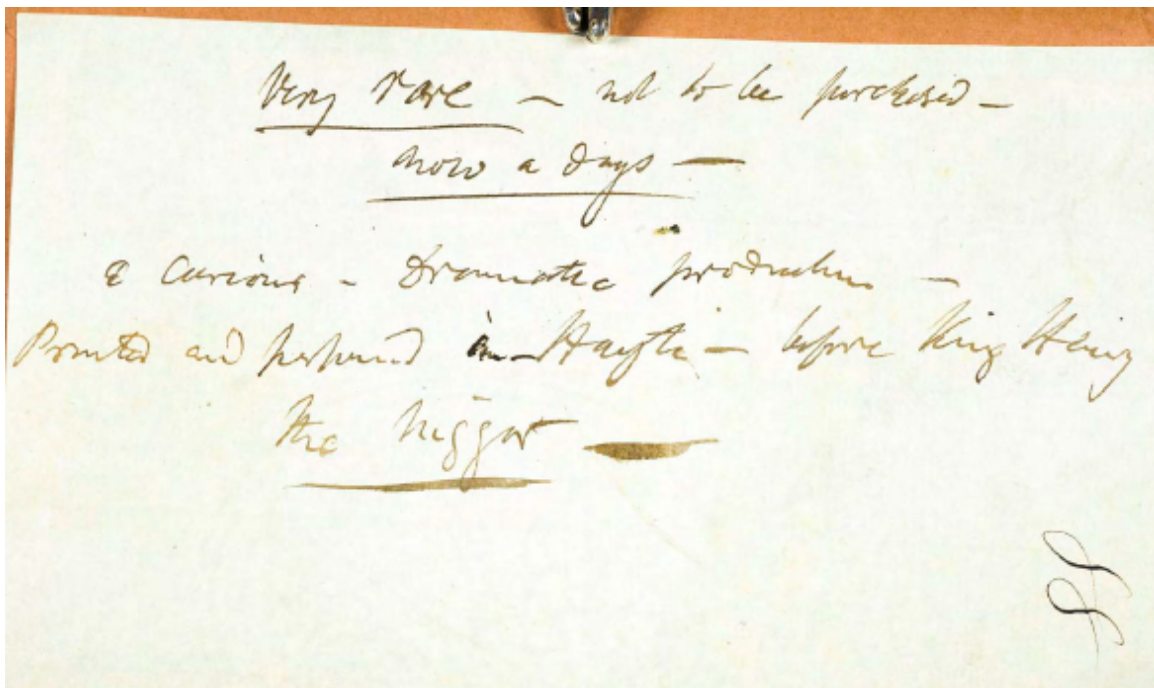 Very rare — not to be purchased —
now a days —
& Curious - Dramatic production —
Printed and performed in Hayti — before King Henry
the nigger —